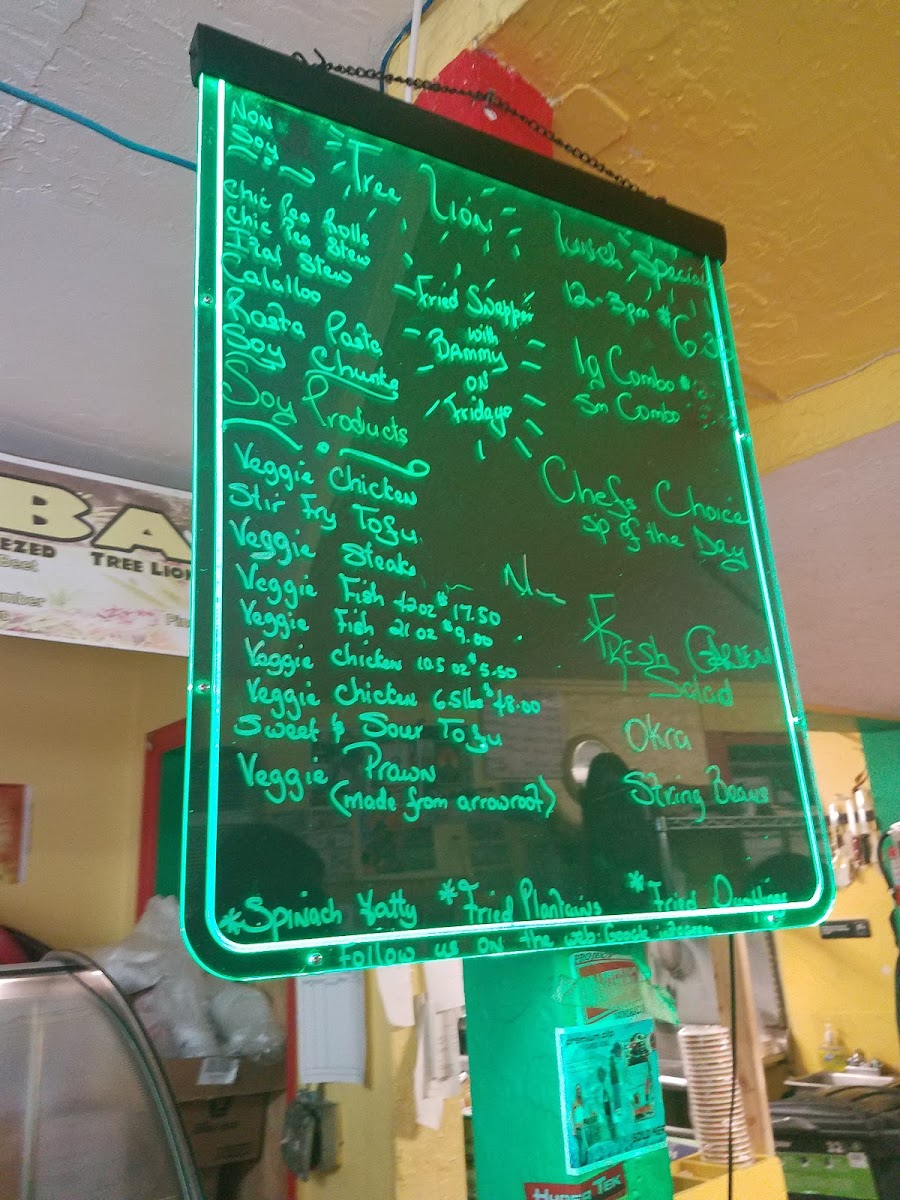 Tree Lion
Non
Soy
Chic Pea Rolls
Chic Pea Stew
Ital Stew
Calalloo
Rasta Pasta
Soy Chunks
Soy Products
Veggie Chicken
Stir Fry Tofu
Veggie Steaks
Veggie Fish 42oz $17.50
Veggie Fish 21oz $9.00
Veggie Chicken 10.5 oz $5.50
Veggie Chicken 6.5lbs $48.00
Sweet & Sour Tofu
Veggie Prawn
(made from arrowroot)
Fried Snapper
with
Bammy
on
Fridays
Lunch Special
12-3pm
Lg Combo
Sm Combo
Chefs Choice
sp of the Day
Fresh Garden
Salad
Okra
String Beans
*Spinach Patty *Fried Plantains *Fried Dumplings
Follow us on the web
BA
EEZED TREE LION
Beet
PROJECT
HYPER TEK